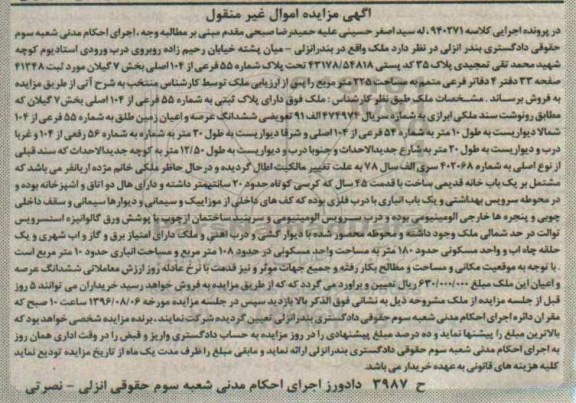 آگهی مزایده اموال غیر منقول
در پرونده اجرایی کلاسه ۹۴۰۲۷۱ ، له سید اصغر حسینی علیه حمیدرضا صبحی مقدم مبنی بر مطالبه وجه ، اجرای احکام مدنی شعبه سوم
حقوقی دادگستری بندر انزلی در نظر دارد ملک واقع در بندرانزلی - میان پشته خیابان رحیم زاده روبروی درب ورودی استادیوم کوچه
شهید محمد تقی تمجیدی پلاک ۳۵ کد پستی ۴۳۱۷۸/۵۴۸۱۸ تحت پلاک شماره ۵۵ فرعی از ۱۰۴ اصلی بخش ۷ گیلان مورد ثبت ۴۱۳۴۸
صفحه ۳۳ دفتر ۴ دفاتر فرعی منضم به مساحت ۲۲۵ متر مربع را پس از ارزیابی ملک توسط کارشناس منتخب به شرح آتی از طریق مزایده
به فروش برساند . مشخصات ملک طبق نظر کارشناس : ملک فوق دارای پلاک ثبتی به شماره ۵۵ فرعی از ۱۰۴ اصلی بخش ۷ گیلان که
مطابق رونوشت سند ملکی ابرازی به شماره سریال ۴۷۴۹۷۴ الف ۹۱ تعویضی ششدانگ عرصه و اعیان زمین طلق به شماره ۵۵ فرعی از ۱۰۴
شمالا دیواریست به طول ۱۰ متر به شماره ۵۴ فرعی از ۱۰۴ اصلی و شرقا دیواریست به طول ۲۰ متر به شماره به شماره ۵۶ رفعی از ۱۰۴ و غربا
درب و دیواریست به طول ۲۰ متر به شارع جدیدالاحداث و جنوبا درب و دیواریست به طول ۱۲/۵۰ متر به کوچه جدیدالاحداث که سند قبلی
از نوع اصلی به شماره ۴۰۲۰۶۸ سری الف سال ۷۸ به علت تغییر مالکیت ابطال گردیده و درحال حاظر ملکی خانم مژده اریانفر می باشد که
مشتمل بر یک باب خانه قدیمی ساخت با قدمت ۴۵ سال که کرسی کوتاه حدود ۲۰ سانتیمتر داشته و دارای هال دو اتاق و اشپزخانه بوده و
در محوطه سرویس بهداشتی و یک باب انباری با درب فلزی بوده که کف های داخلی از موزاییک و سیمانی و دیوارها سیمانی و سقف داخلی
چوبی و پنجره ها خارجی الومینیومی بوده و درب سرویس الومینیومی و سربندساختمان از چوب با پوشش ورق گالوانیزه است سرویس
توالت در حد شمالی ملک وجود داشته و محوطه محصور شده با دیوار گشی و درب اهنی و ملک دارای امتیاز برق و گاز و اب شهری و یک
حلقه چاه اب و واحد مسکونی حدود ۱۸۰ متر به مساحت واحد مسکونی در حدود ۱۰۸ متر مربع و مساحت انباری حدود ۱۰ متر مربع است
. با توجه به موقعیت مکانی و مساحت و مصالح بکار رفته و جمیع جهات موثر و نیز قدمت با نرخ عادله روز ارزش معاملاتی ششدانگ عرصه
و اعیان این ملک مبلغ ۶۳۰/۰۰۰/۰۰۰ ریال تعیین و براورد می گردد که که از طریق مزایده به فروش خواهد رسید خریداران می توانند ۵ روز
قبل از جلسه مزایده از ملک مشروحه ذیل به نشانی فوق الذکر بالا بازدید سپس در جلسه مزایده مورخه ۱۳۹۶/۰۸/۰۶ ساعت ۱۰ صبح که
مقر ان دائره اجرای احکام مدنی شعبه سوم حقوقی دادگستری بندرانزلی تعیین گردیده شرکت نمایند . برنده مزایده شخصی خواهد بود که
بالاترین مبلغ را پیشنها نماید و ده درصد مبلغ پیشنهادی را در روز مزایده به حساب دادگستری واریز و قبض را در وقت اداری همان روز
به اجرای احکام مدنی شعبه سوم حقوقی دادگستری بندرانزلی ارائه نماید و مابقی مبلغ را ظرف مدت یک ماه از تاریخ مزایده تودیع نماید
کلیه هزینه های قانونی به عهده خریدار می باشد
ح ۳۹۸۷ دادورز اجرای احکام مدنی شعبه سوم حقوقی انزلی - نصرتی